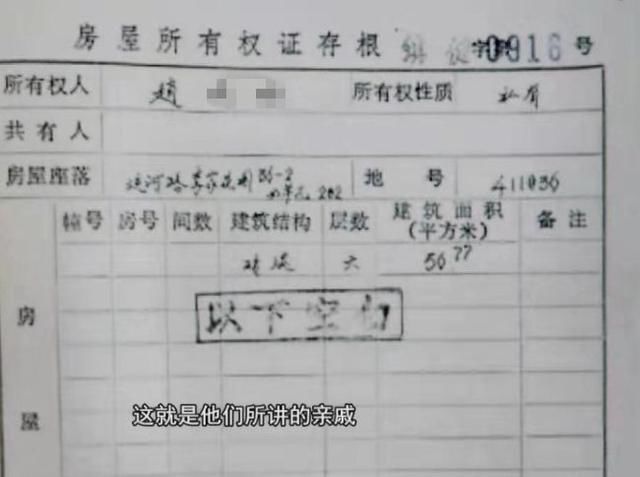 房屋所有权证存根 字第0916号
所有权人 趙 所有权性质 私有
共有人
房屋座落 运河路 36-2 地号 411036
单元 202
幢号 房号 间数 建筑结构 层数 建筑面积(平方米) 备注
六 56.77
以下空白
房
屋
这就是他们所讲的亲戚